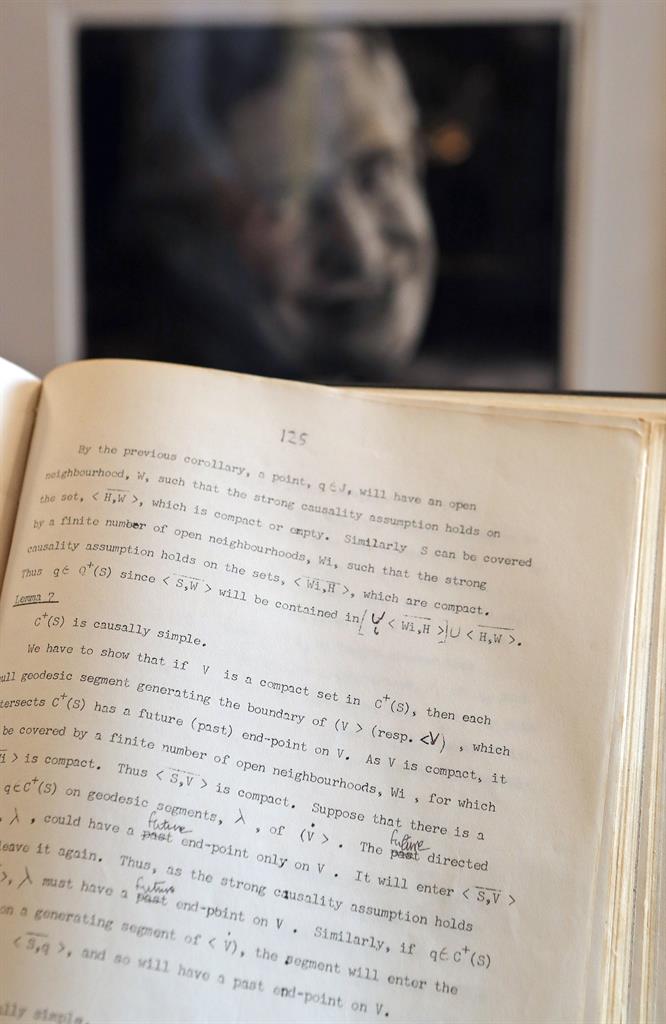 125
By the previous corollary, a point, q ∈ J, will have an open
neighbourhood, W, such that the strong causality assumption holds on
the set, < H̅,̅W̅ >, which is compact or empty. Similarly S can be covered
by a finite number of open neighbourhoods, Wi, such that the strong
causality assumption holds on the sets, < W̅i̅,̅H̅ >, which are compact.
Thus q ∈ Q⁺(S) since < S̅,̅W̅ > will be contained in [ ∪ᵢ < W̅i̅,̅H̅ >] ∪ < H̅,̅W̅ >.
Lemma 7
C⁺(S) is causally simple.
We have to show that if V is a compact set in C⁺(S), then each
ull geodesic segment generating the boundary of (V > (resp. <V) , which
tersects C⁺(S) has a future (past) end-point on V. As V is compact, it
be covered by a finite number of open neighbourhoods, Wi , for which
i̅ > is compact. Thus < S̅,̅V̅ > is compact. Suppose that there is a
q ∈ C⁺(S) on geodesic segments, λ , of (V̇ > . The past future directed
, λ , could have a past future end-point only on V . It will enter < S̅,̅V̅ >
leave it again. Thus, as the strong causality assumption holds
>, λ must have a past future end-point on V . Similarly, if q ∈ C⁺(S)
on a generating segment of < V̇), the segment will enter the
< S̅,̅q̅ >, and so will have a past end-point on V.
lly simple.